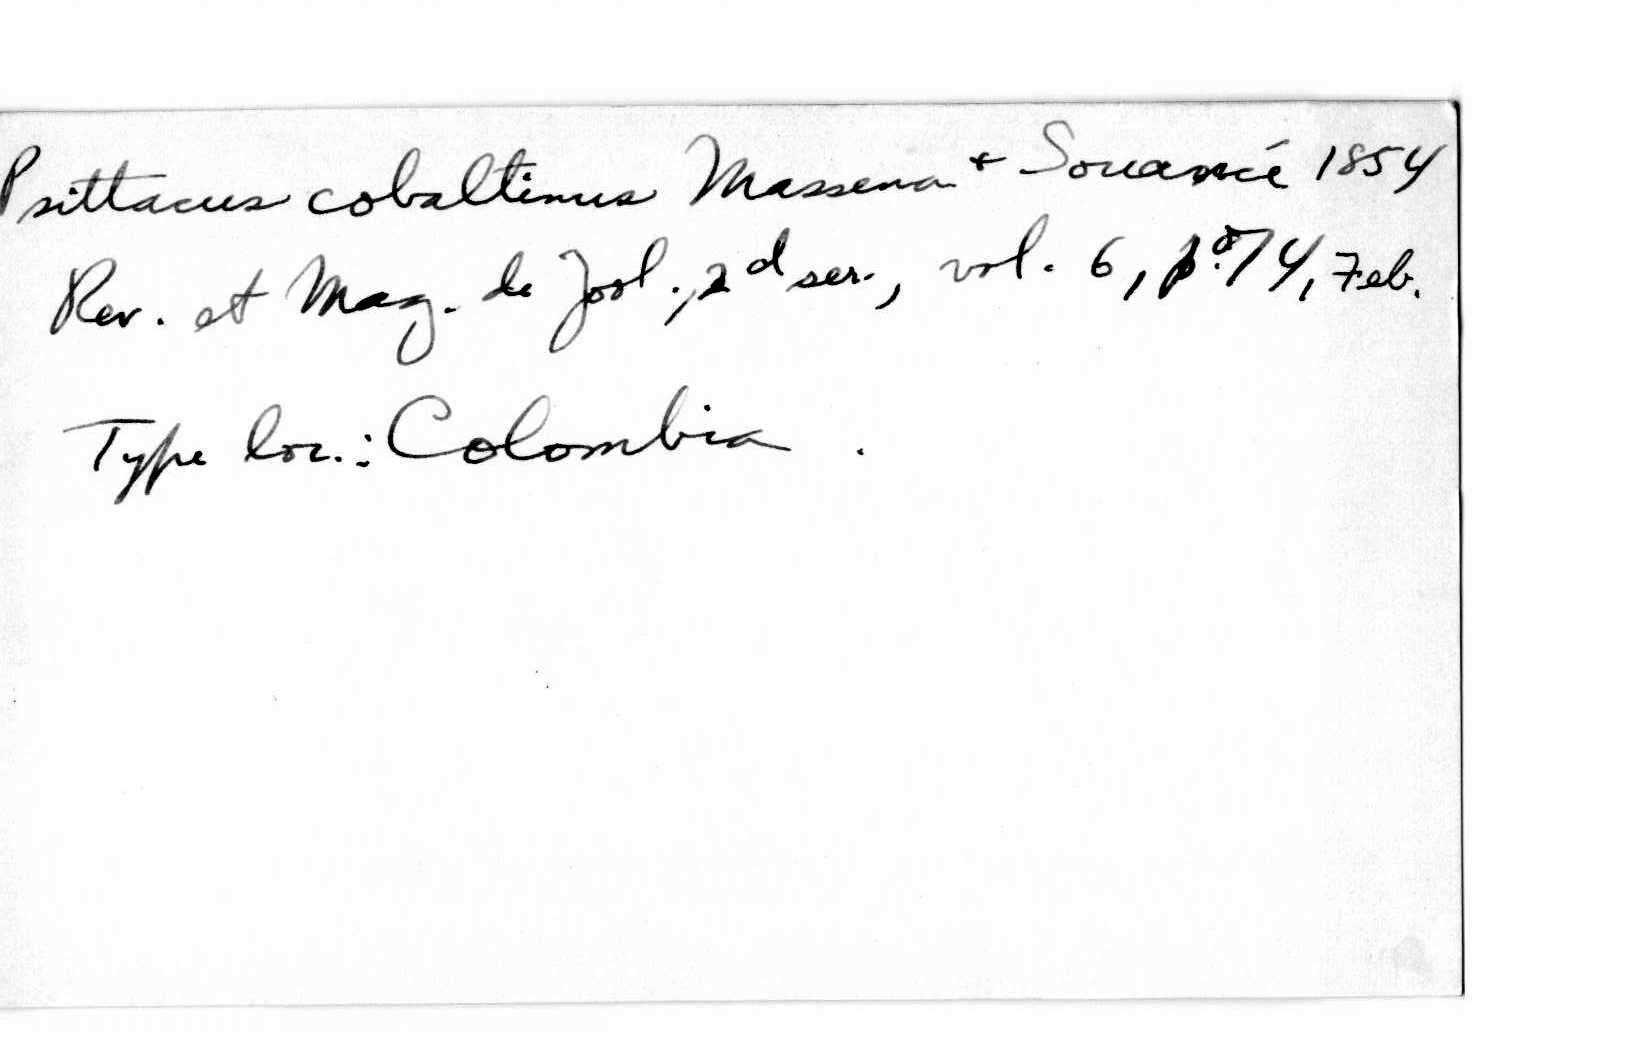 Psittacus cobaltinus Massena + Souancé 1854
Rev. et Mag. de Zool., 2d ser., vol. 6, p. 74, Feb.
Type loc.: Colombia.